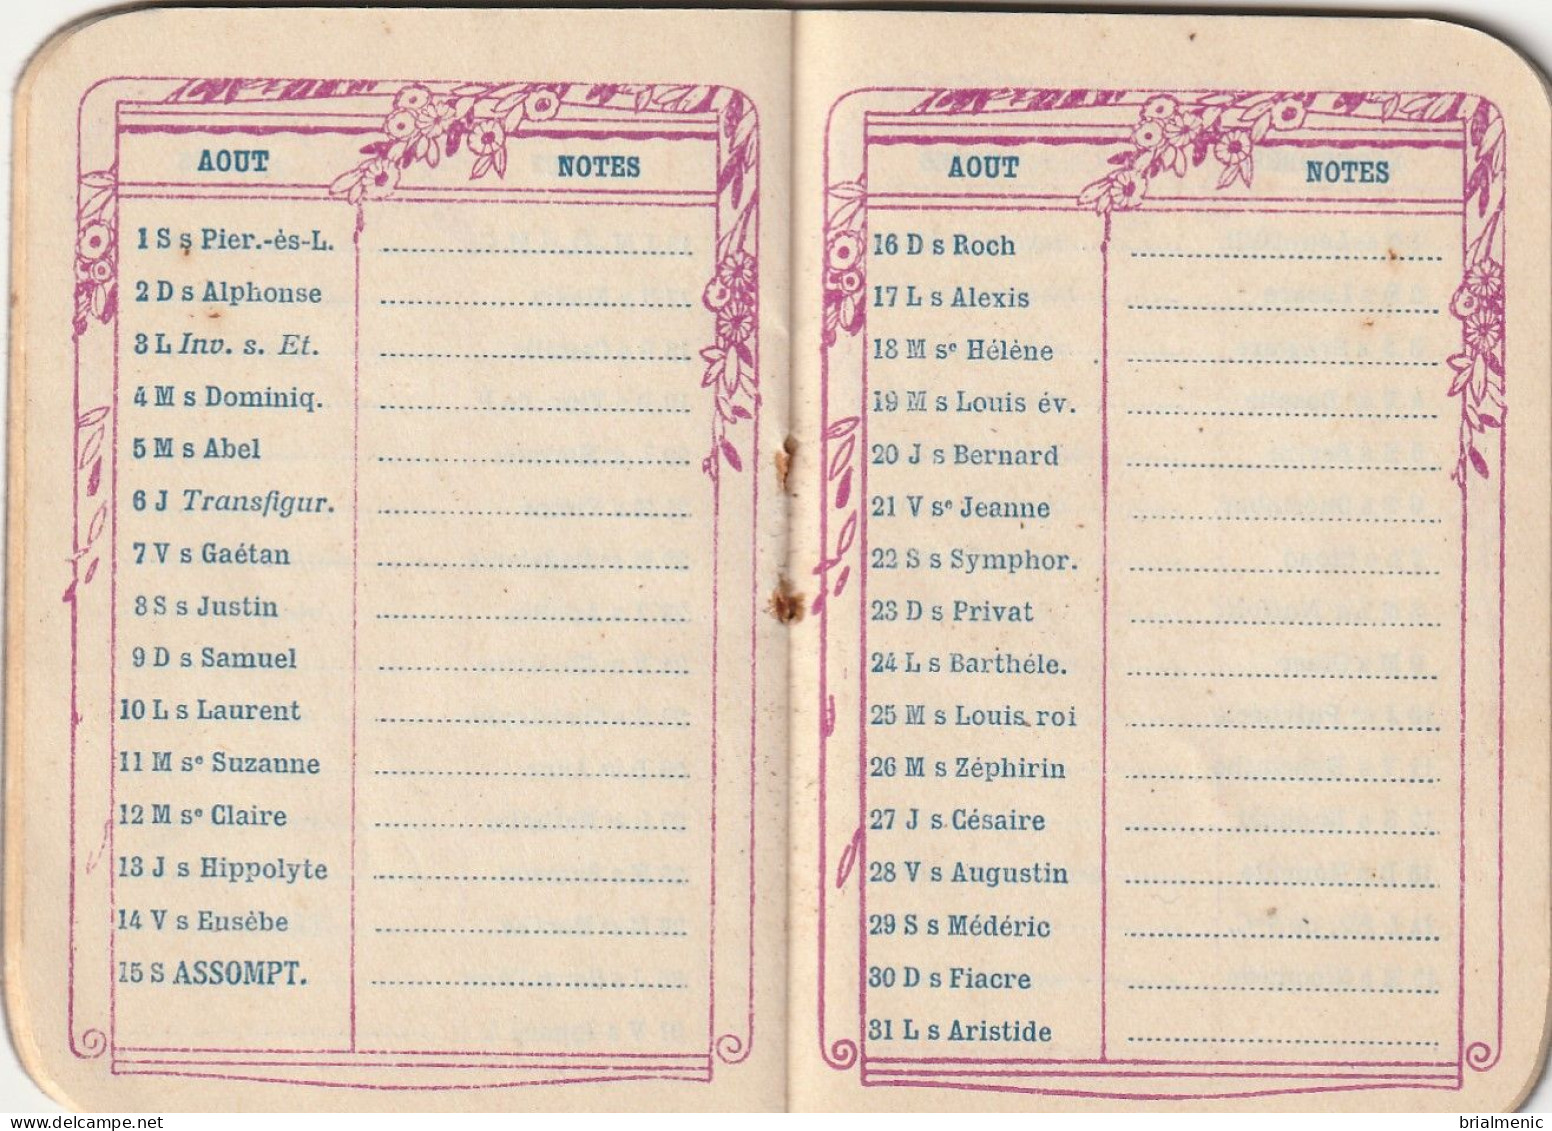 AOUT NOTES
1 S s Pier.-ès-L.
2 D s Alphonse
3 L Inv. s. Et.
4 M s Dominiq.
5 M s Abel
6 J Transfigur.
7 V s Gaétan
8 S s Justin
9 D s Samuel
10 L s Laurent
11 M sᵉ Suzanne
12 M sᵉ Claire
13 J s Hippolyte
14 V s Eusèbe
15 S ASSOMPT.
AOUT NOTES
16 D s Roch
17 L s Alexis
18 M sᵉ Hélène
19 M s Louis év.
20 J s Bernard
21 V sᵉ Jeanne
22 S s Symphor.
23 D s Privat
24 L s Barthéle.
25 M s Louis roi
26 M s Zéphirin
27 J s Césaire
28 V s Augustin
29 S s Médéric
30 D s Fiacre
31 L s Aristide
brialmenic